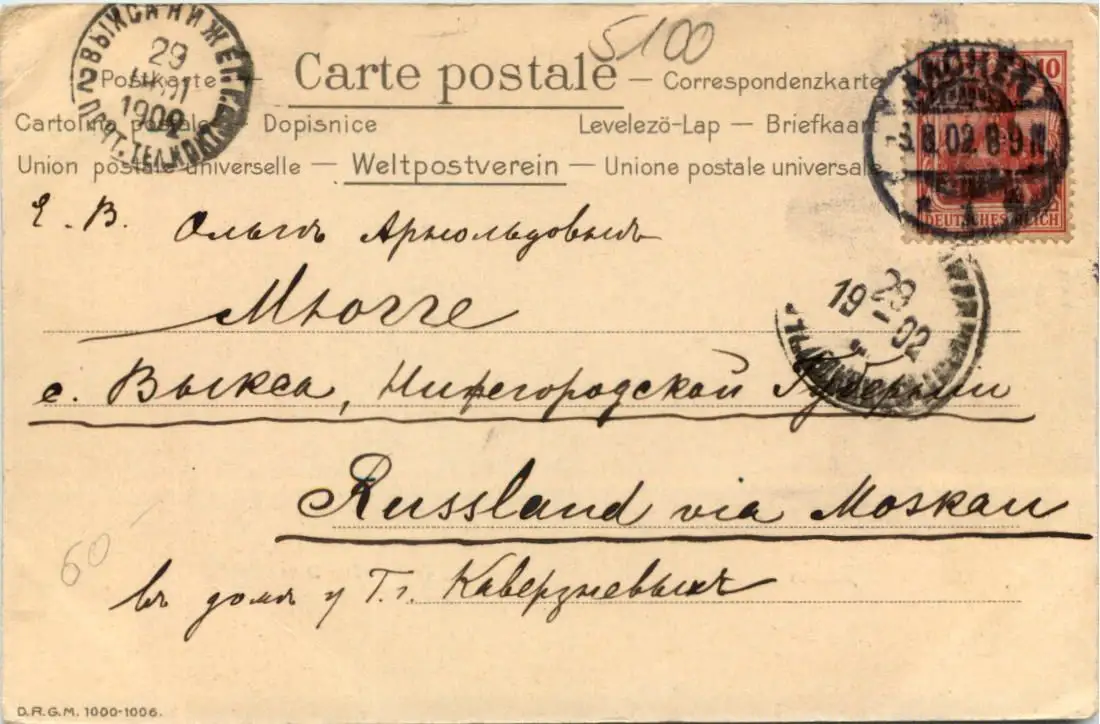 5100
ВЫКСА НИЖЕГ. Г.
29
1902
ПОЧТ. ТЕЛ. КОНТ.
Postkarte — Carte postale — Correspondenzkarte
Cartolina postale — Dopisnice Levelezö-Lap — Briefkaart
Union postale universelle — Weltpostverein — Unione postale universale
10
AACHEN
8.02. 8-9 N.
1
DEUTSCHES REICH
Е. В. Ольгѣ Арнольдовнѣ
Мюгге
29
19 – 02
с. Выкса, Нижегородской Губерніи
Russland via Moskau
60
въ домѣ у Г. г. Каверзневыхъ
D.R.G.M. 1000-1006.